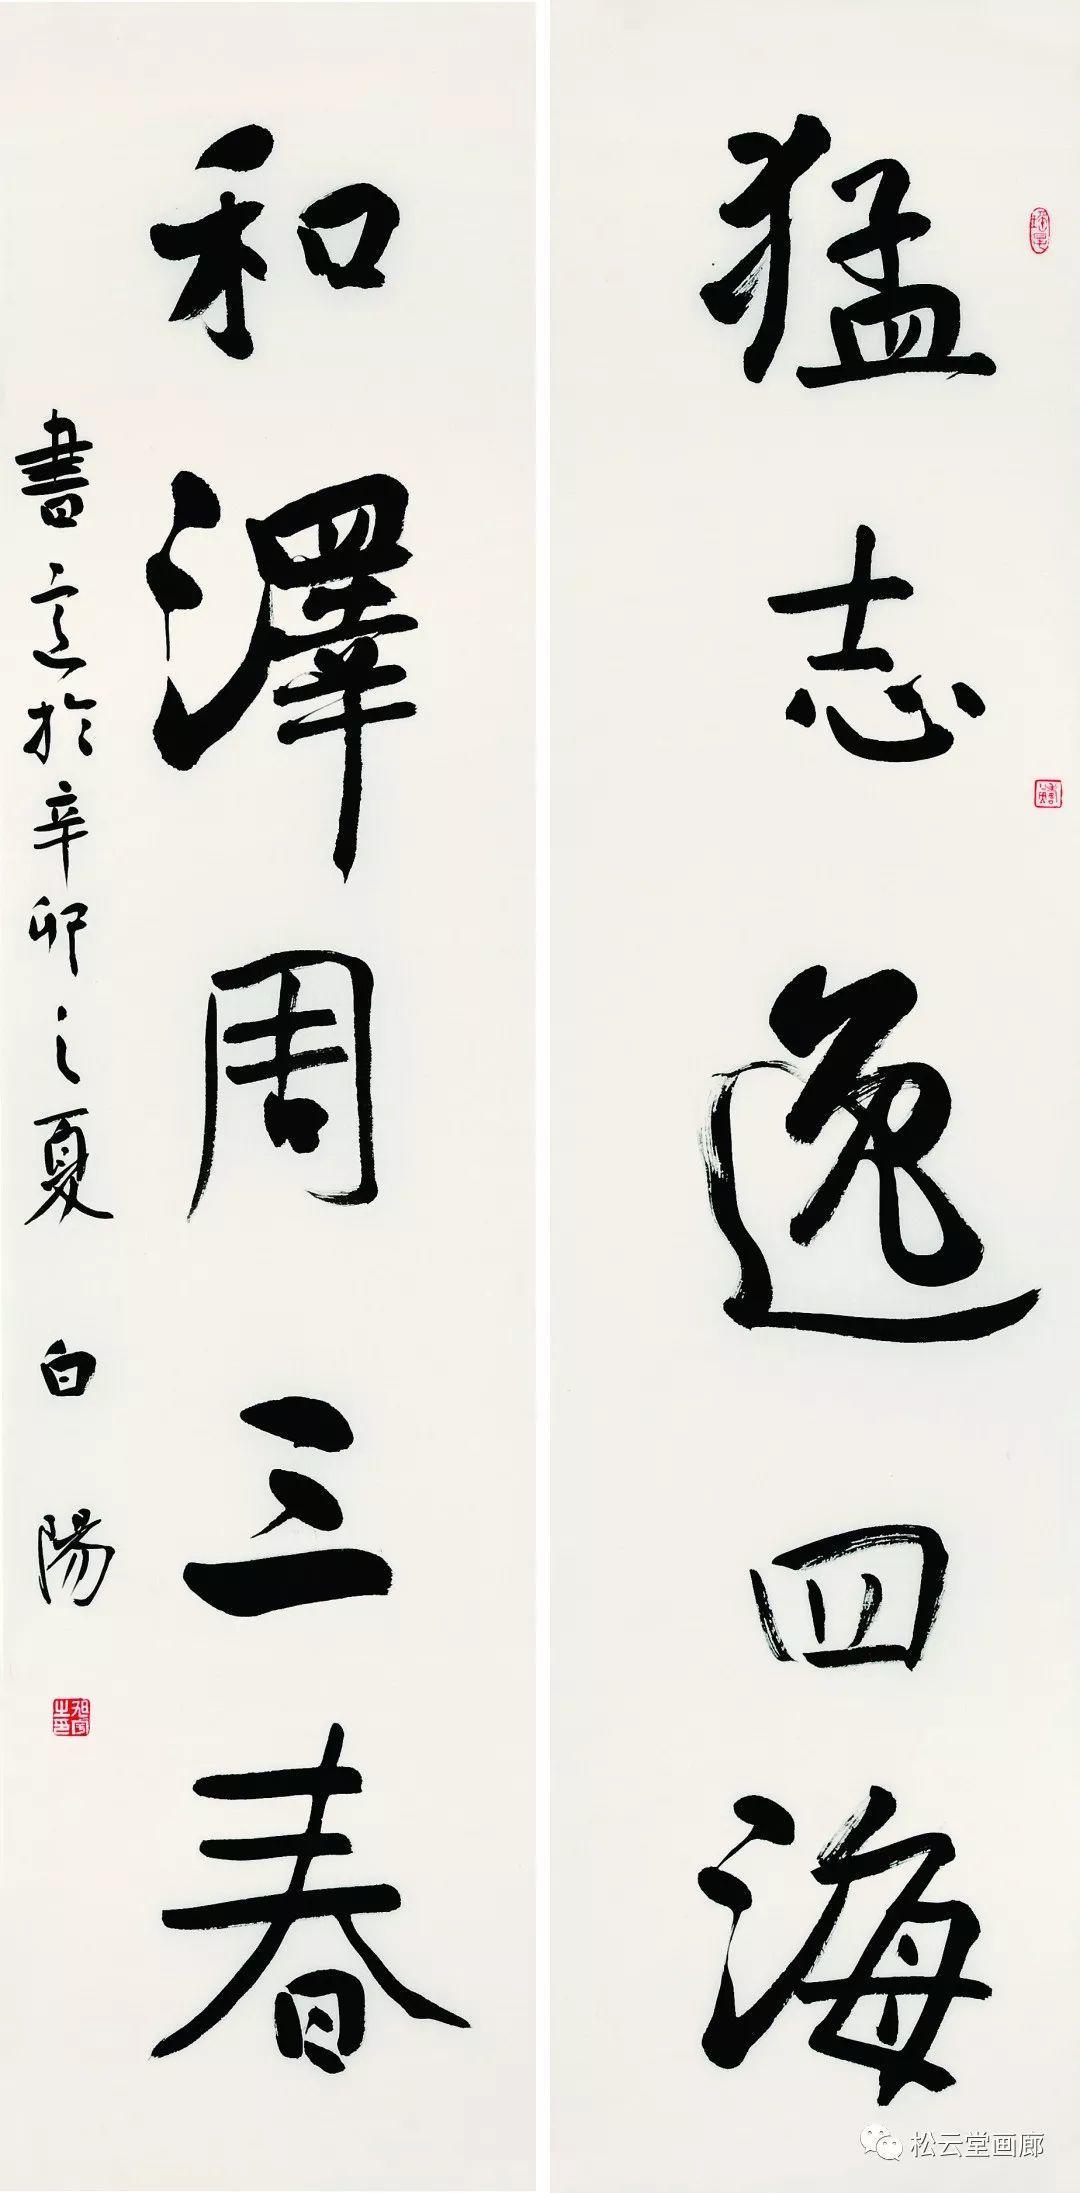 猛志逸四海
和澤周三春
書意於辛卯之夏 白陽
松云堂画廊